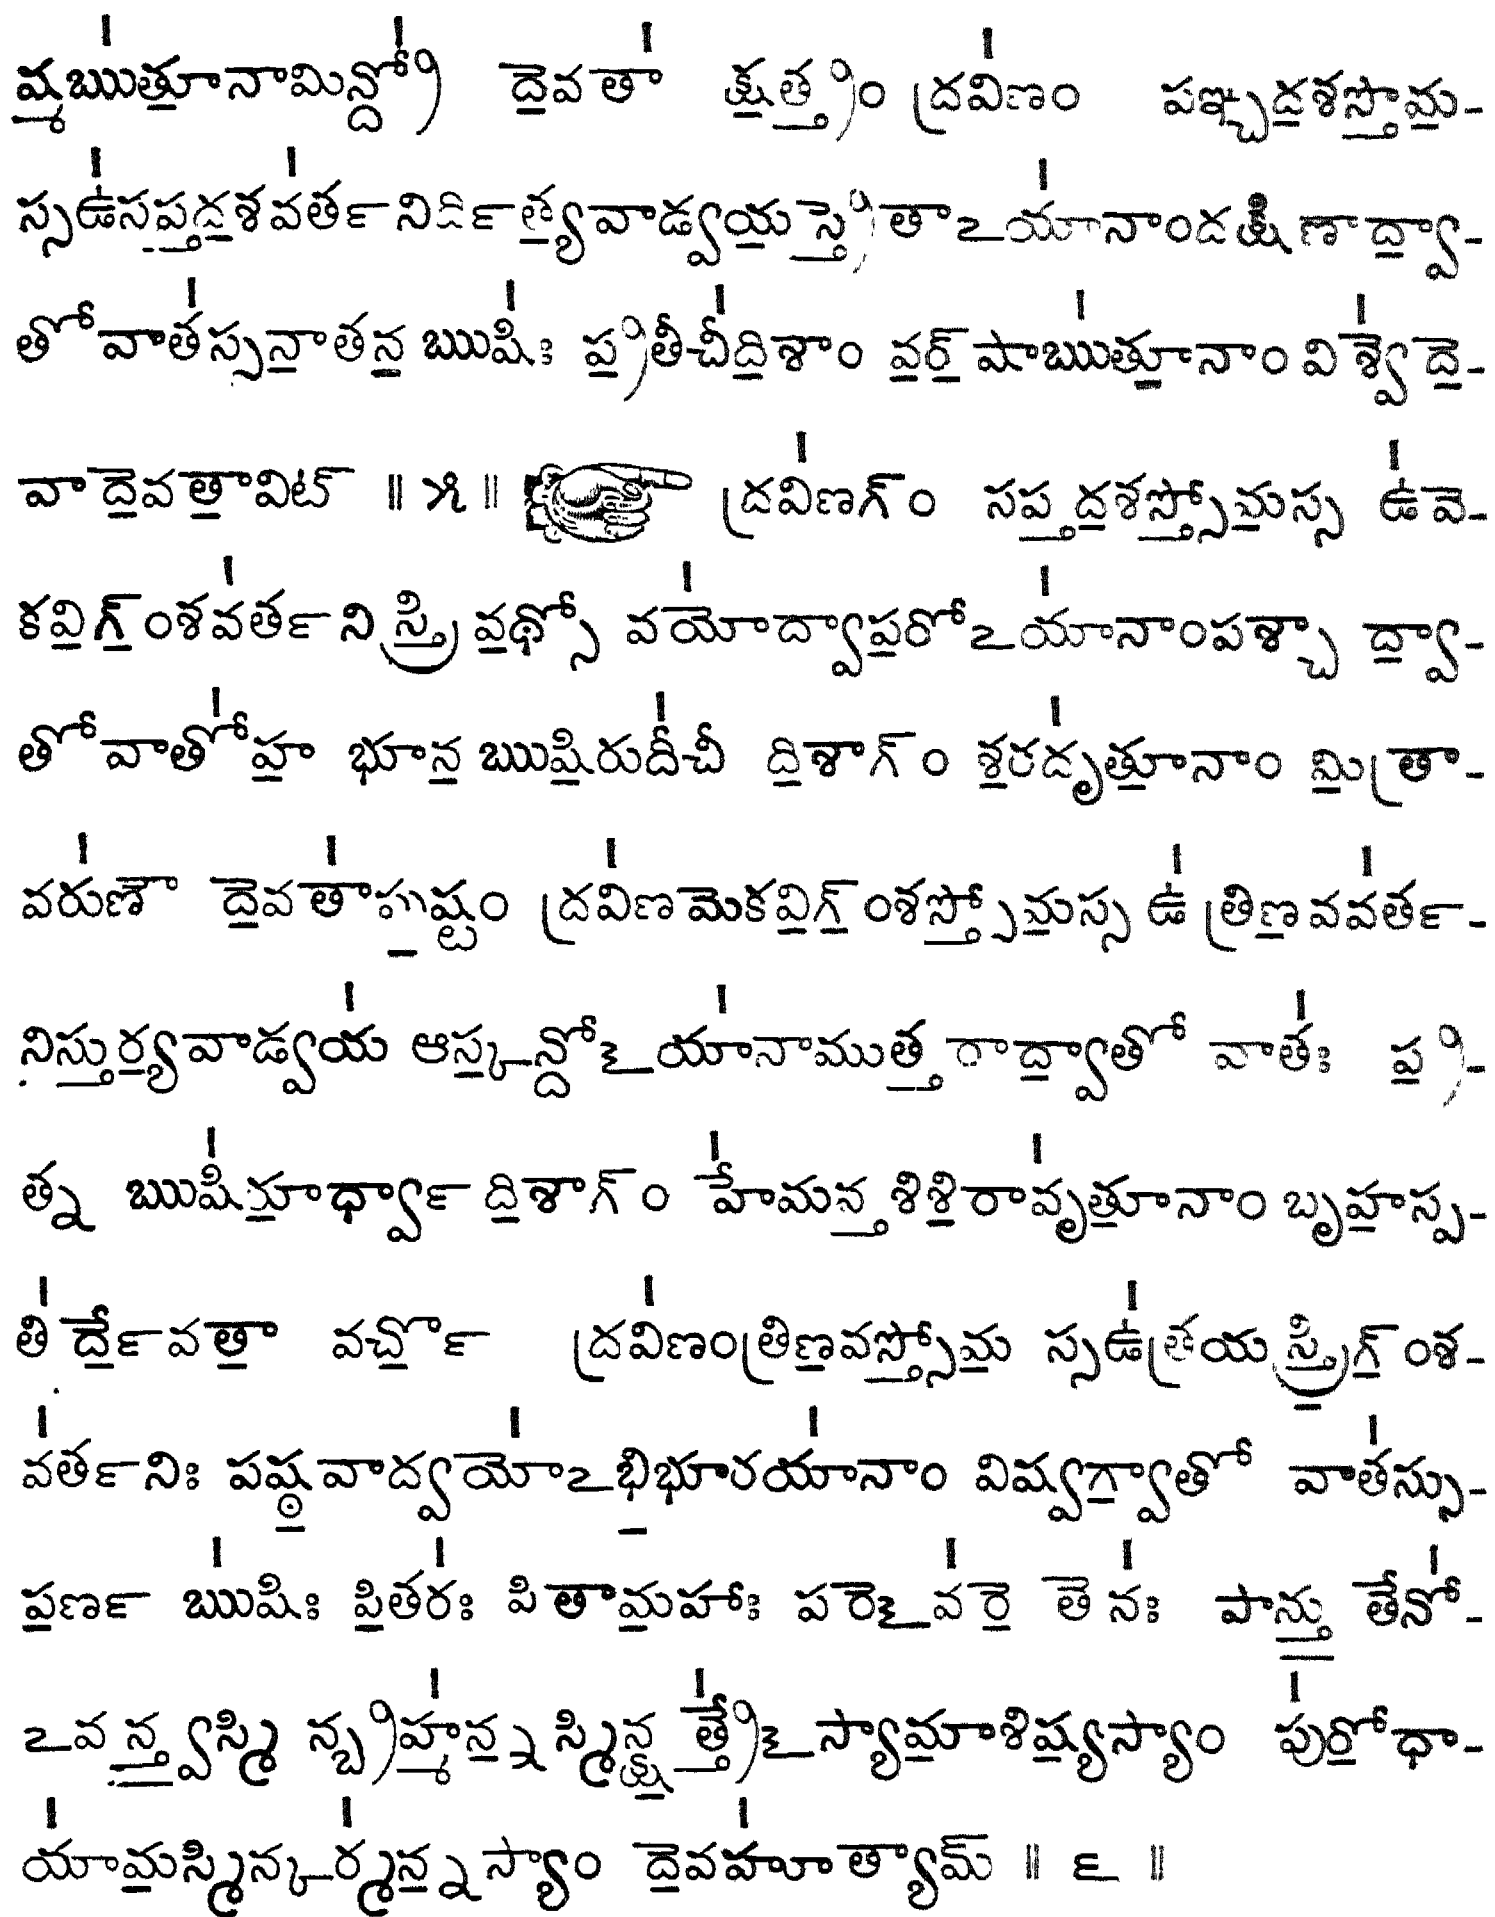 ష్మఋ॑త్తూనామిన్ద్రో॑ దే॒వతా॑ క్ష॒త్త్రం ద్రవి॑ణం పఞ్చద॒శస్తో॒మ॒-
స్సఉ॑సప్త॒ద॒శవ॑ర్తనిర్ది॒త్య॒వాడ్వ॒య॒స్త్రే॒తాఽయా॑నాందక్షిణాద్వా॒-
తోవాత॑స్సనా॒తన॒ ఋషిః॑ ప్ర॒తీచీ॑ది॒శాం వ॒ర్॒షాఋ॑త్తూ॒నాం విశ్వే॑దే॒-
వాదే॒వతా॒విట్ ॥ ౫ ॥ ద్రవి॑ణగ్ం సప్త॒ద॒శస్తో॒మ॒స్స ఉ॑వే-
కవి॒గ్॒ంశవ॑ర్తనిస్త్రి॒వ॒థ్సో వయో॑ద్వాప॒రోఽయా॑నాంపశ్చా ద్వా॒-
తోవాతో॑హ॒ భూన॒ ఋషి॒రుదీ॑చీ ది॒శాగ్ం శ॒రదృ॑త్తూ॒నాం మి॒త్రా-
వరు॑ణౌ దే॒వతా॑పు॒ష్టం ద్రవి॑ణమేకవి॒గ్॒ంశస్తో॒మ॒స్స ఉ॑ త్రిణ॒వవ॑ర్త-
నిస్తు॒ర్య॒వాడ్వయ॑ ఆస్క॒న్దోఽయా॑నాముత్త॒రాద్వా॒తో వాతః॑ ప్ర॒-
త్న ఋషి॑రూ॒ర్ధ్వా ది॒శాగ్ం హే॑మన్త॒శిశి॒రావృ॑త్తూ॒నాం బృహ॒స్ప-
తి॑ర్దే॒వతా॒ వర్చో॒ ద్రవి॑ణంత్రిణ॒వస్తో॒మ॒ స్సఉ॑త్రయస్త్రి॒గ్॒ంశ-
వ॑ర్తనిః పష్ఠ॒వాద్వయో॑ఽభి॒భూరయా॑నాం విష్వగ్వా॒తో వాత॑స్సు-
ప॒ర్ణ ఋషిః॑ పి॒తరః॑ పితామ॒హాః పరేఽవ॑రే॒ తేనః॑ పాన్తు॒ తేనో॑-
ఽవన్త్వ॒స్మి న్బ్రహ్మ॑న్న॒స్మిన్క్ష॒త్త్రే॑ఽస్యామా॒శిష్య॒స్యాం పు॑రో॒ధా-
యా॑మ॒స్మిన్కర్మ॑న్న॒స్యాం దే॒వహూ॑త్యామ్ ॥ ౬ ॥